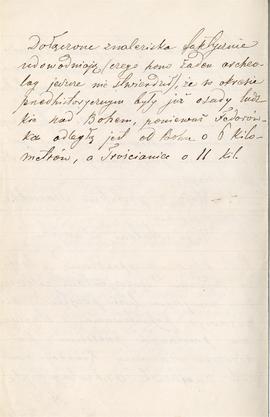 Dołączone znaleziska faktycznie
udowodniają (czego pono żaden archeo-
log jeszcze nie stwierdził), że w okresie
przedhistorycznym były już osady ludz-
kie nad Bohem, ponieważ Fedorów-
ka odległą jest od Bohu o 6 kilo-
metrów, a Trościanice o 11 kil.